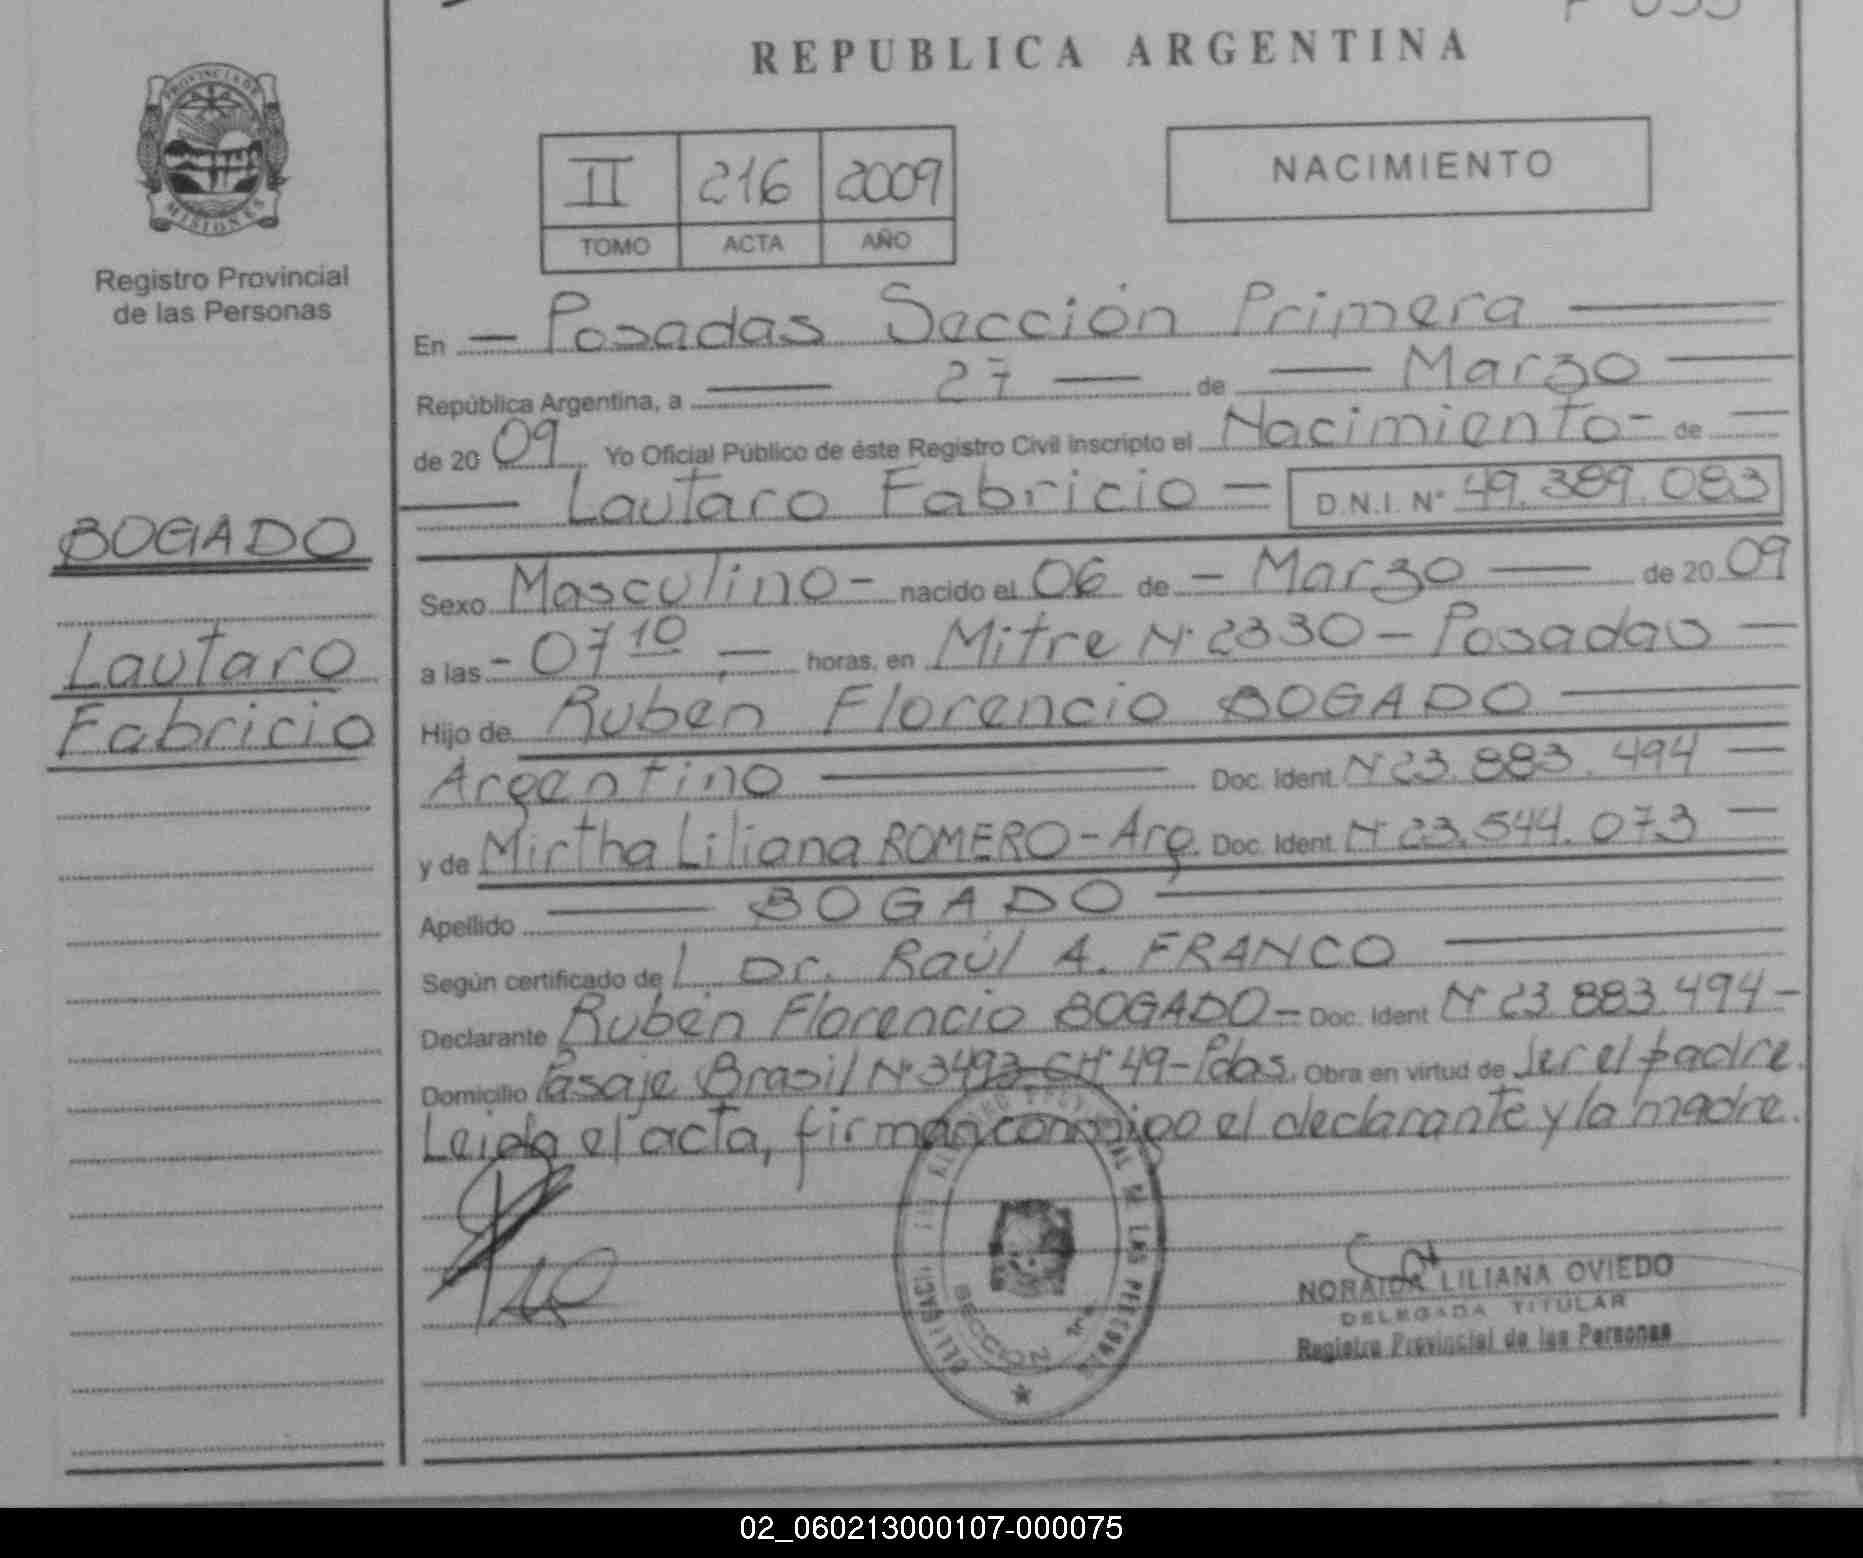 REPUBLICA ARGENTINA
PROVINCIA DE MISIONES
Registro Provincial
de las Personas
II 216 2009
TOMO ACTA AÑO
NACIMIENTO
En - Posadas Sección Primera
República Argentina, a 27 de Marzo
de 20 09 Yo Oficial Público de éste Registro Civil inscripto el Nacimiento - de
Lautaro Fabricio = D.N.I. N° 49.389.083
BOGADO
Lautaro
Fabricio
Sexo Masculino - nacido el 06 de - Marzo de 20 09
a las - 07 10 horas, en Mitre N° 2330 - Posadas
Hijo de Ruben Florencio BOGADO
Argentino Doc. Ident. N° 23.883.494
y de Mirtha Liliana ROMERO - Arg. Doc. Ident. N° 23.544.073
Apellido BOGADO
Según certificado de Dr. Raúl A. FRANCO
Declarante Rubén Florencio BOGADO - Doc. Ident N° 23.883.494 -
Domicilio Pasaje Brasil N° 3493 CH 49 - Pdas. Obra en virtud de ser el padre.
Leida el acta, firman conmigo el declarante y la madre.
SECCION 1ra
NORAIDA LILIANA OVIEDO
DELEGADA TITULAR
Registro Provincial de las Personas
02_060213000107-000075